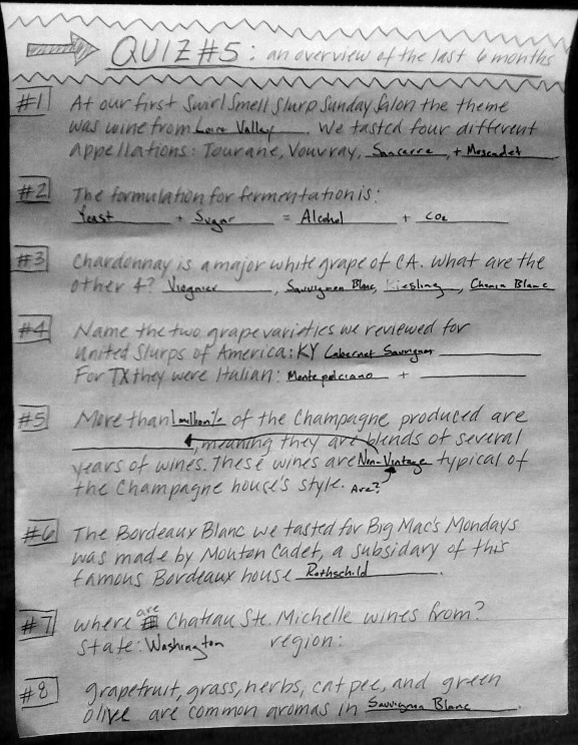 QUIZ #5: an overview of the last 6 months
#1 At our first Swirl Smell Slurp Sunday Salon the theme
was wine from Loire Valley. We tasted four different
appellations: Tourane, Vouvray, Sancerre, + Muscadet
#2 The formulation for fermentation is:
Yeast + Sugar = Alcohol + CO2
#3 Chardonnay is a major white grape of CA. What are the
other 4? Viognier, Sauvignon Blanc, Riesling, Chenin Blanc
#4 Name the two grape varieties we reviewed for
United Slurps of America: KY Cabernet Sauvignon
For TX they were Italian: Montepulciano +
#5 More than 1 million % of the Champagne produced are
, meaning they are blends of several
years of wines. These wines are Non-Vintage typical of
the Champagne house's style. Are?
#6 The Bordeaux Blanc we tasted for Big Mac's Mondays
was made by Mouton Cadet, a subsidary of this
famous Bordeaux house Rothschild.
#7 where are Chateau Ste. Michelle wines from?
state: Washington region:
#8 grapefruit, grass, herbs, cat pee, and green
olive are common aromas in Sauvignon Blanc.